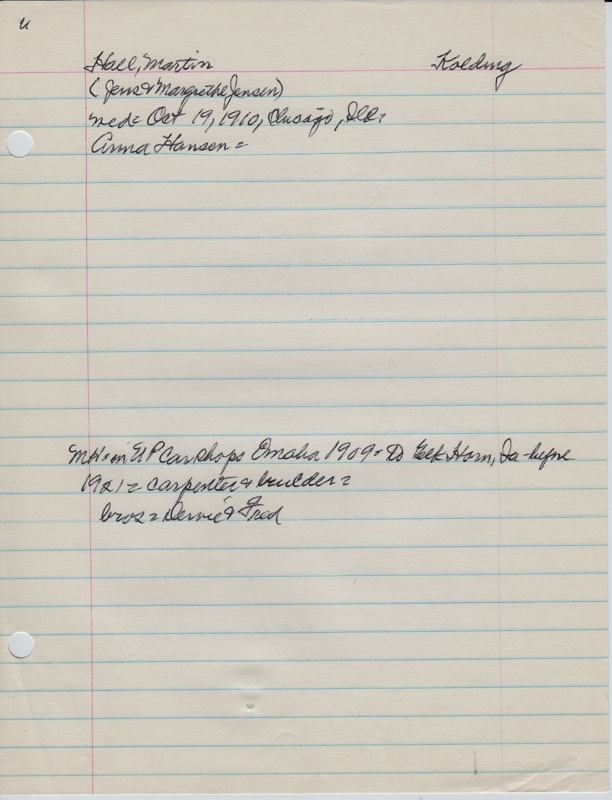 u
Hall, Martin Kolding
(Jens & Margrethe Jensen)
med= Oct 19, 1910, Chicago, Ill=
Anna Hansen =
MH= in UP Car Shops Omaha 1909= To Elk Horn, Ia - before
1921 = carpenter & builder =
bros = & Fred